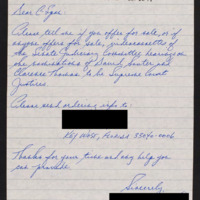 Dear C-Span:
Please tell us if you offer for sale, or if
anyone offers for sale, videocassettes of
the Senate Judiciary Committee hearings on
the nominations of David Souter and
Clarence Thomas to be Supreme Court
Justices.
Please send ordering info to:
Key West, Florida 33040-
Thanks for your time and any help you
can provide.
Sincerely,